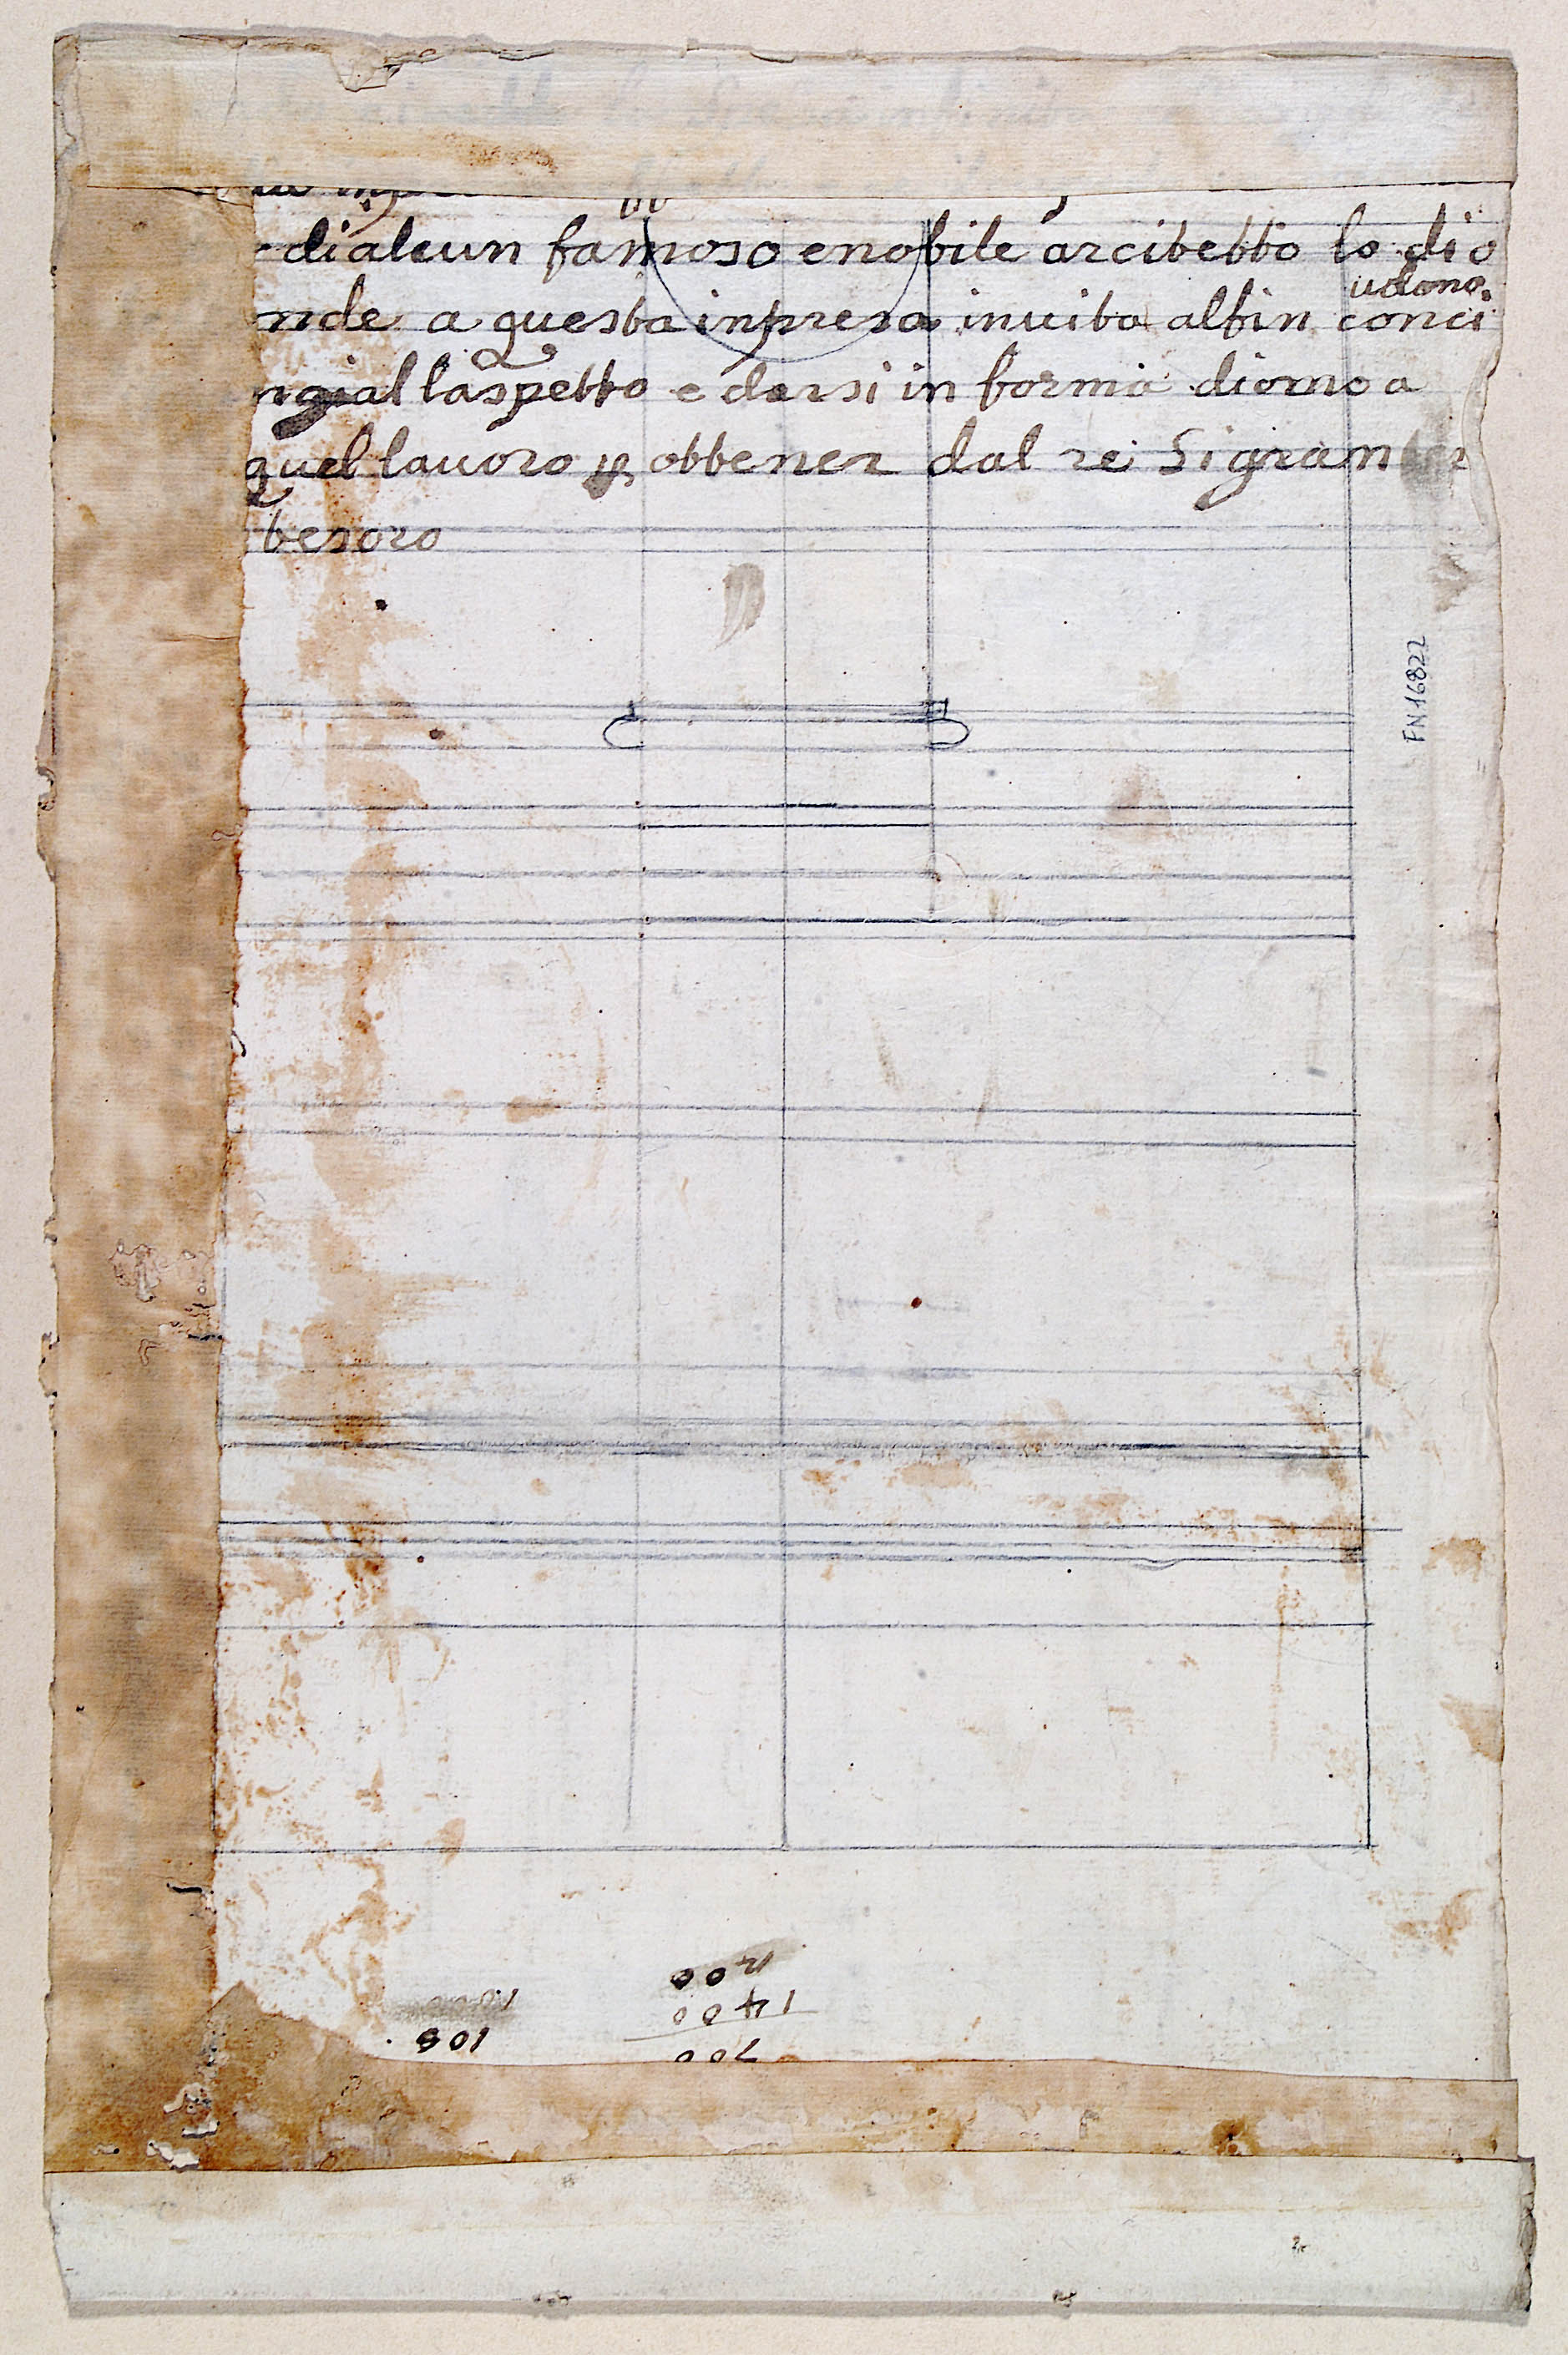 di alcun famoso e nobile arcitetto lo dio
udono.
nde a questa inpresa inuita alfin conci
ngial laspetto e darsi in forma diomo a
quel lauoro ꝑ ottener dal re si gran
tesoro
FN 16822
108
700
1400
700